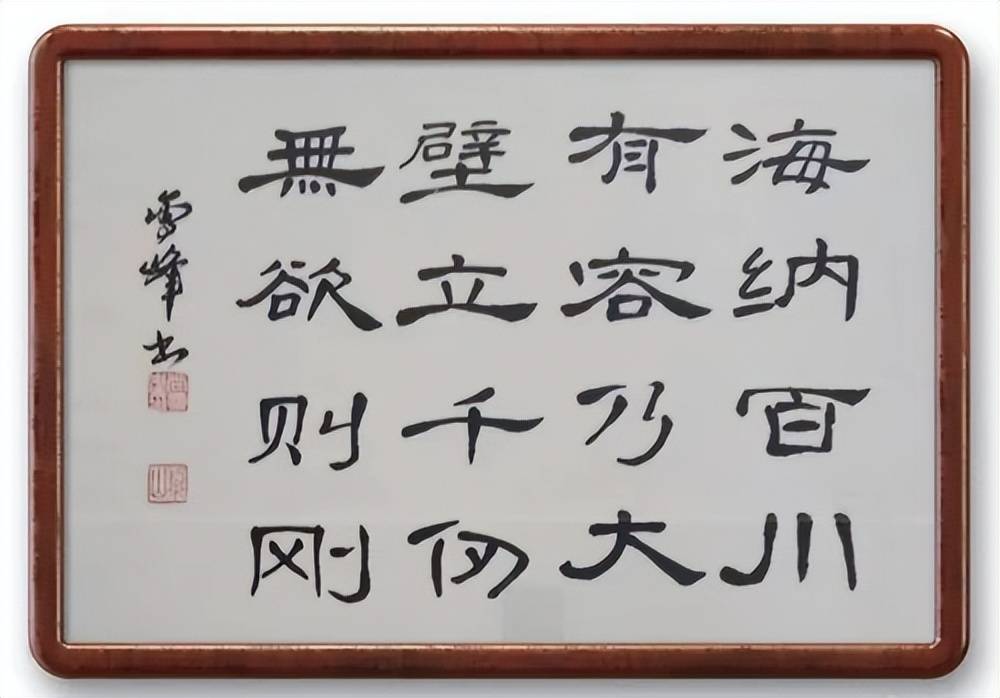 海纳百川
有容乃大
壁立千仞
無欲则刚
雪峰书